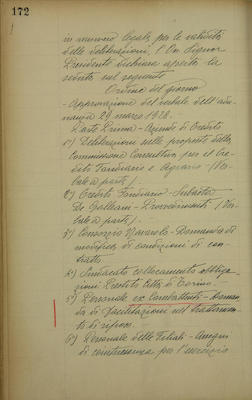 172
in numero legale per la validità
delle deliberazioni, l'On. Signor
Presidente dichiara aperta la
seduta sul seguente
Ordine del giorno
- Approvazione del verbale dell'adu-
nanza 29 marzo 1928.
Parte Prima - Aziende di Credito
1°) Deliberazioni sulle proposte della
Commissione Consultiva per il Cre-
dito Fondiario e Agrario - (Ver-
bale a parte).
2°) Credito Fondiario -
De - Provvedimenti (Ver-
bale a parte).
3°) Consorzio - Domanda di
modifica di condizioni di con-
tratto.
4°) Sindacato collocamento obbliga-
zioni Prestito Città di Torino.
5°) Personale ex Combattente - Doman-
da di facilitazioni nel trattamen-
to di riposo.
6°) Personale delle Filiali - Assegni
di contingenza per l'esercizio